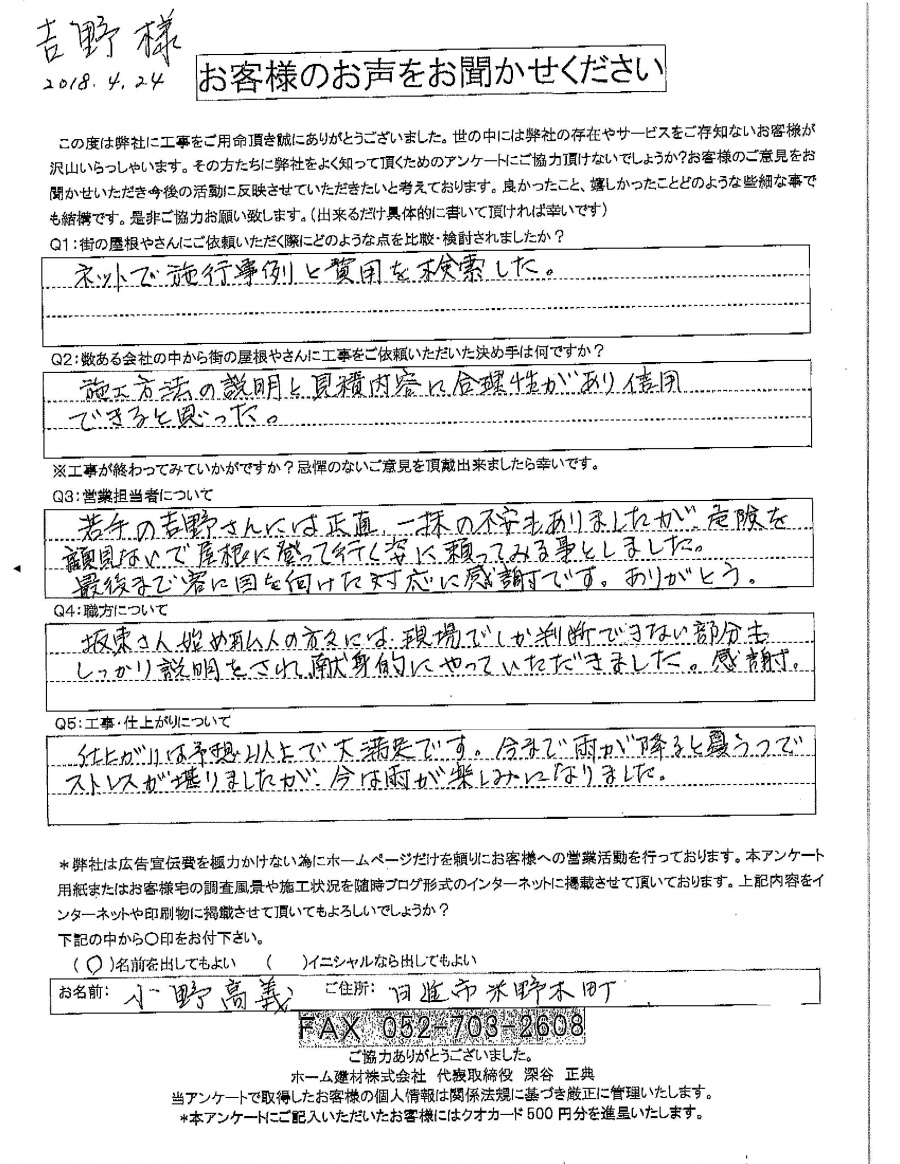 吉野様
2018.4.24
お客様のお声をお聞かせください
この度は弊社に工事をご用命頂き誠にありがとうございました。世の中には弊社の存在やサービスをご存知ないお客様が
沢山いらっしゃいます。その方たちに弊社をよく知って頂くためのアンケートにご協力頂けないでしょうか?お客様のご意見をお
聞かせいただき今後の活動に反映させていただきたいと考えております。良かったこと、嬉しかったことどのような些細な事で
も結構です。是非ご協力お願い致します。(出来るだけ具体的に書いて頂ければ幸いです)
Q1:街の屋根やさんにご依頼いただく際にどのような点を比較・検討されましたか?
ネットで施行事例と費用を検索した。
Q2:数ある会社の中から街の屋根やさんに工事をご依頼いただいた決め手は何ですか?
施工方法の説明と見積内容に合理性があり信用
できると思った。
※工事が終わってみていかがですか?忌憚のないご意見を頂戴出来ましたら幸いです。
Q3:営業担当者について
若手の吉野さんには正直、一抹の不安もありましたが、危険を
顧見ないで屋根に登って行く姿に頼ってみる事としました。
最後まで客に目を向けた対応に感謝です。ありがとう。
Q4:職方について
坂東さん始め職人の方々には、現場でしか判断できない部分も
しっかり説明をされ、献身的にやっていただきました。感謝。
Q5:工事・仕上がりについて
仕上がりは予想以上で大満足です。今まで雨が降ると憂うつで
ストレスが堪りましたが、今は雨が楽しみになりました。
*弊社は広告宣伝費を極力かけない為にホームページだけを頼りにお客様への営業活動を行っております。本アンケート
用紙またはお客様宅の調査風景や施工状況を随時ブログ形式のインターネットに掲載させて頂いております。上記内容をイ
ンターネットや印刷物に掲載させて頂いてもよろしいでしょうか?
下記の中から〇印をお付下さい。
(〇)名前を出してもよい ( )イニシャルなら出してもよい
お名前: 小野高義 ご住所: 日進市米野木町
FAX 052-703-2608
ご協力ありがとうございました。
ホーム建材株式会社 代表取締役 深谷 正典
当アンケートで取得したお客様の個人情報は関係法規に基づき厳正に管理いたします。
*本アンケートにご記入いただいたお客様にはクオカード500円分を進呈いたします。